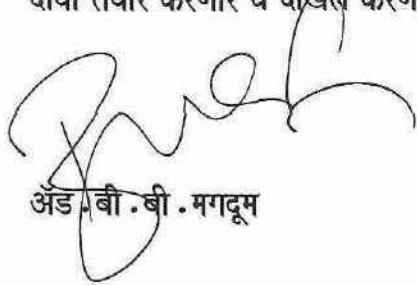 दावा तयार करणार व दाखल करण
अॅड . बी . बी . मगदूम